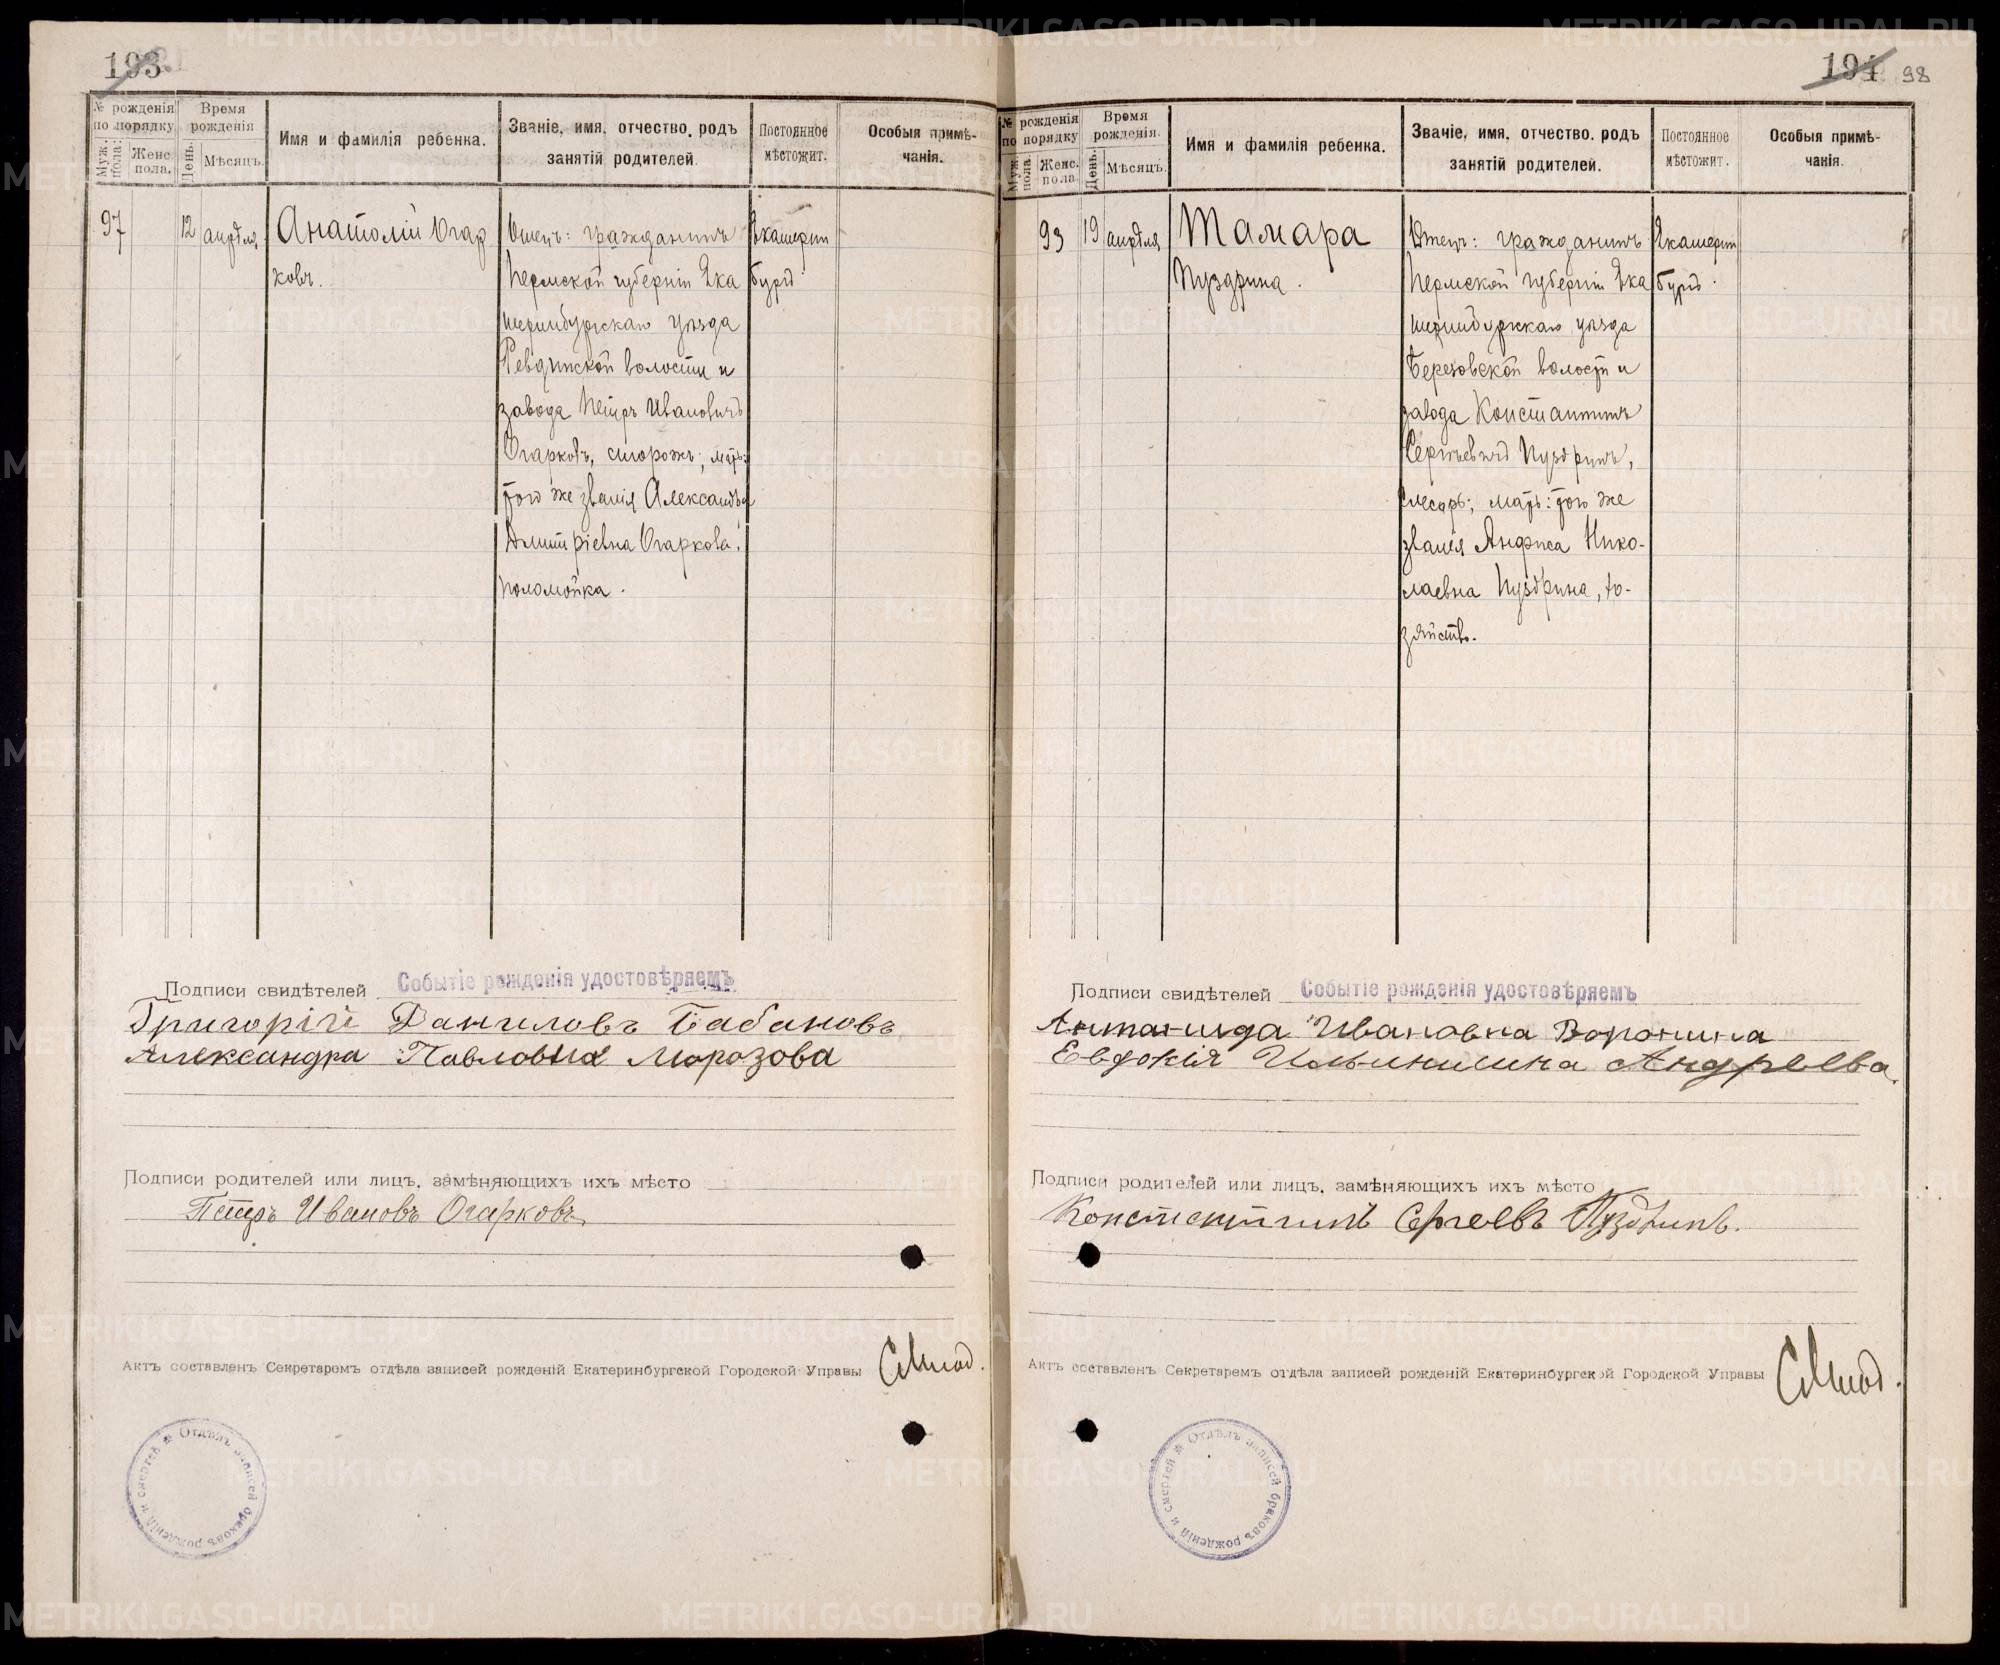 193
№ рожденія по порядку
Муж. пола.
Женс. пола.
Время рожденія
День.
Мѣсяцъ.
Имя и фамилія ребенка.
Званіе, имя, отчество, родъ
занятій родителей.
Постоянное
мѣстожит.
Особыя примѣ-
чанія.
97
12
апрѣля
Анатолій Огар
ковъ.
Отецъ: гражданинъ
Пермской губерніи Ека
теринбургскаго уѣзда
Ревдинской волости и
завода Петръ Ивановичъ
Огарковъ, сторожъ; мать:
того же званія Александра
Дмитріевна Огаркова,
поломойка.
Екатерин
бургъ
Подписи свидѣтелей
Событіе рожденія удостовѣряемъ
Григорій Даниловъ Бабановъ
Александра Павловна Морозова
Подписи родителей или лицъ, замѣняющихъ ихъ мѣсто
Петръ Ивановъ Огарковъ
Актъ составленъ Секретаремъ отдѣла записей рожденій Екатеринбургской Городской Управы
Отдѣлъ записей браковъ рожденій и смертей
194
98
№ рожденія по порядку
Муж. пола.
Женс. пола
Время рожденія.
День.
Мѣсяцъ.
Имя и фамилія ребенка.
Званіе, имя, отчество, родъ
занятій родителей.
Постоянное
мѣстожит.
Особыя примѣ-
чанія.
93
19
апрѣля
Тамара
Пуздрина.
Отецъ: гражданинъ
Пермской губерніи Ека
теринбургскаго уѣзда
Березовской волости и
завода Константинъ
Сергѣевичъ Пуздринъ,
слесарь; мать: того же
званія Анфиса Нико-
лаевна Пуздрина, хо-
зяйство.
Екатерин
бургъ.
Подписи свидѣтелей
Событіе рожденія удостовѣряемъ
Антонида Ивановна Воронина
Евдокія Ильинишна Андреева.
Подписи родителей или лицъ, замѣняющихъ ихъ мѣсто
Константинъ Сергеевъ Пуздринъ.
Актъ составленъ Секретаремъ отдѣла записей рожденій Екатеринбургской Городской Управы
Отдѣлъ записей браковъ рожденій и смертей
METRIKI.GASO-URAL.RU